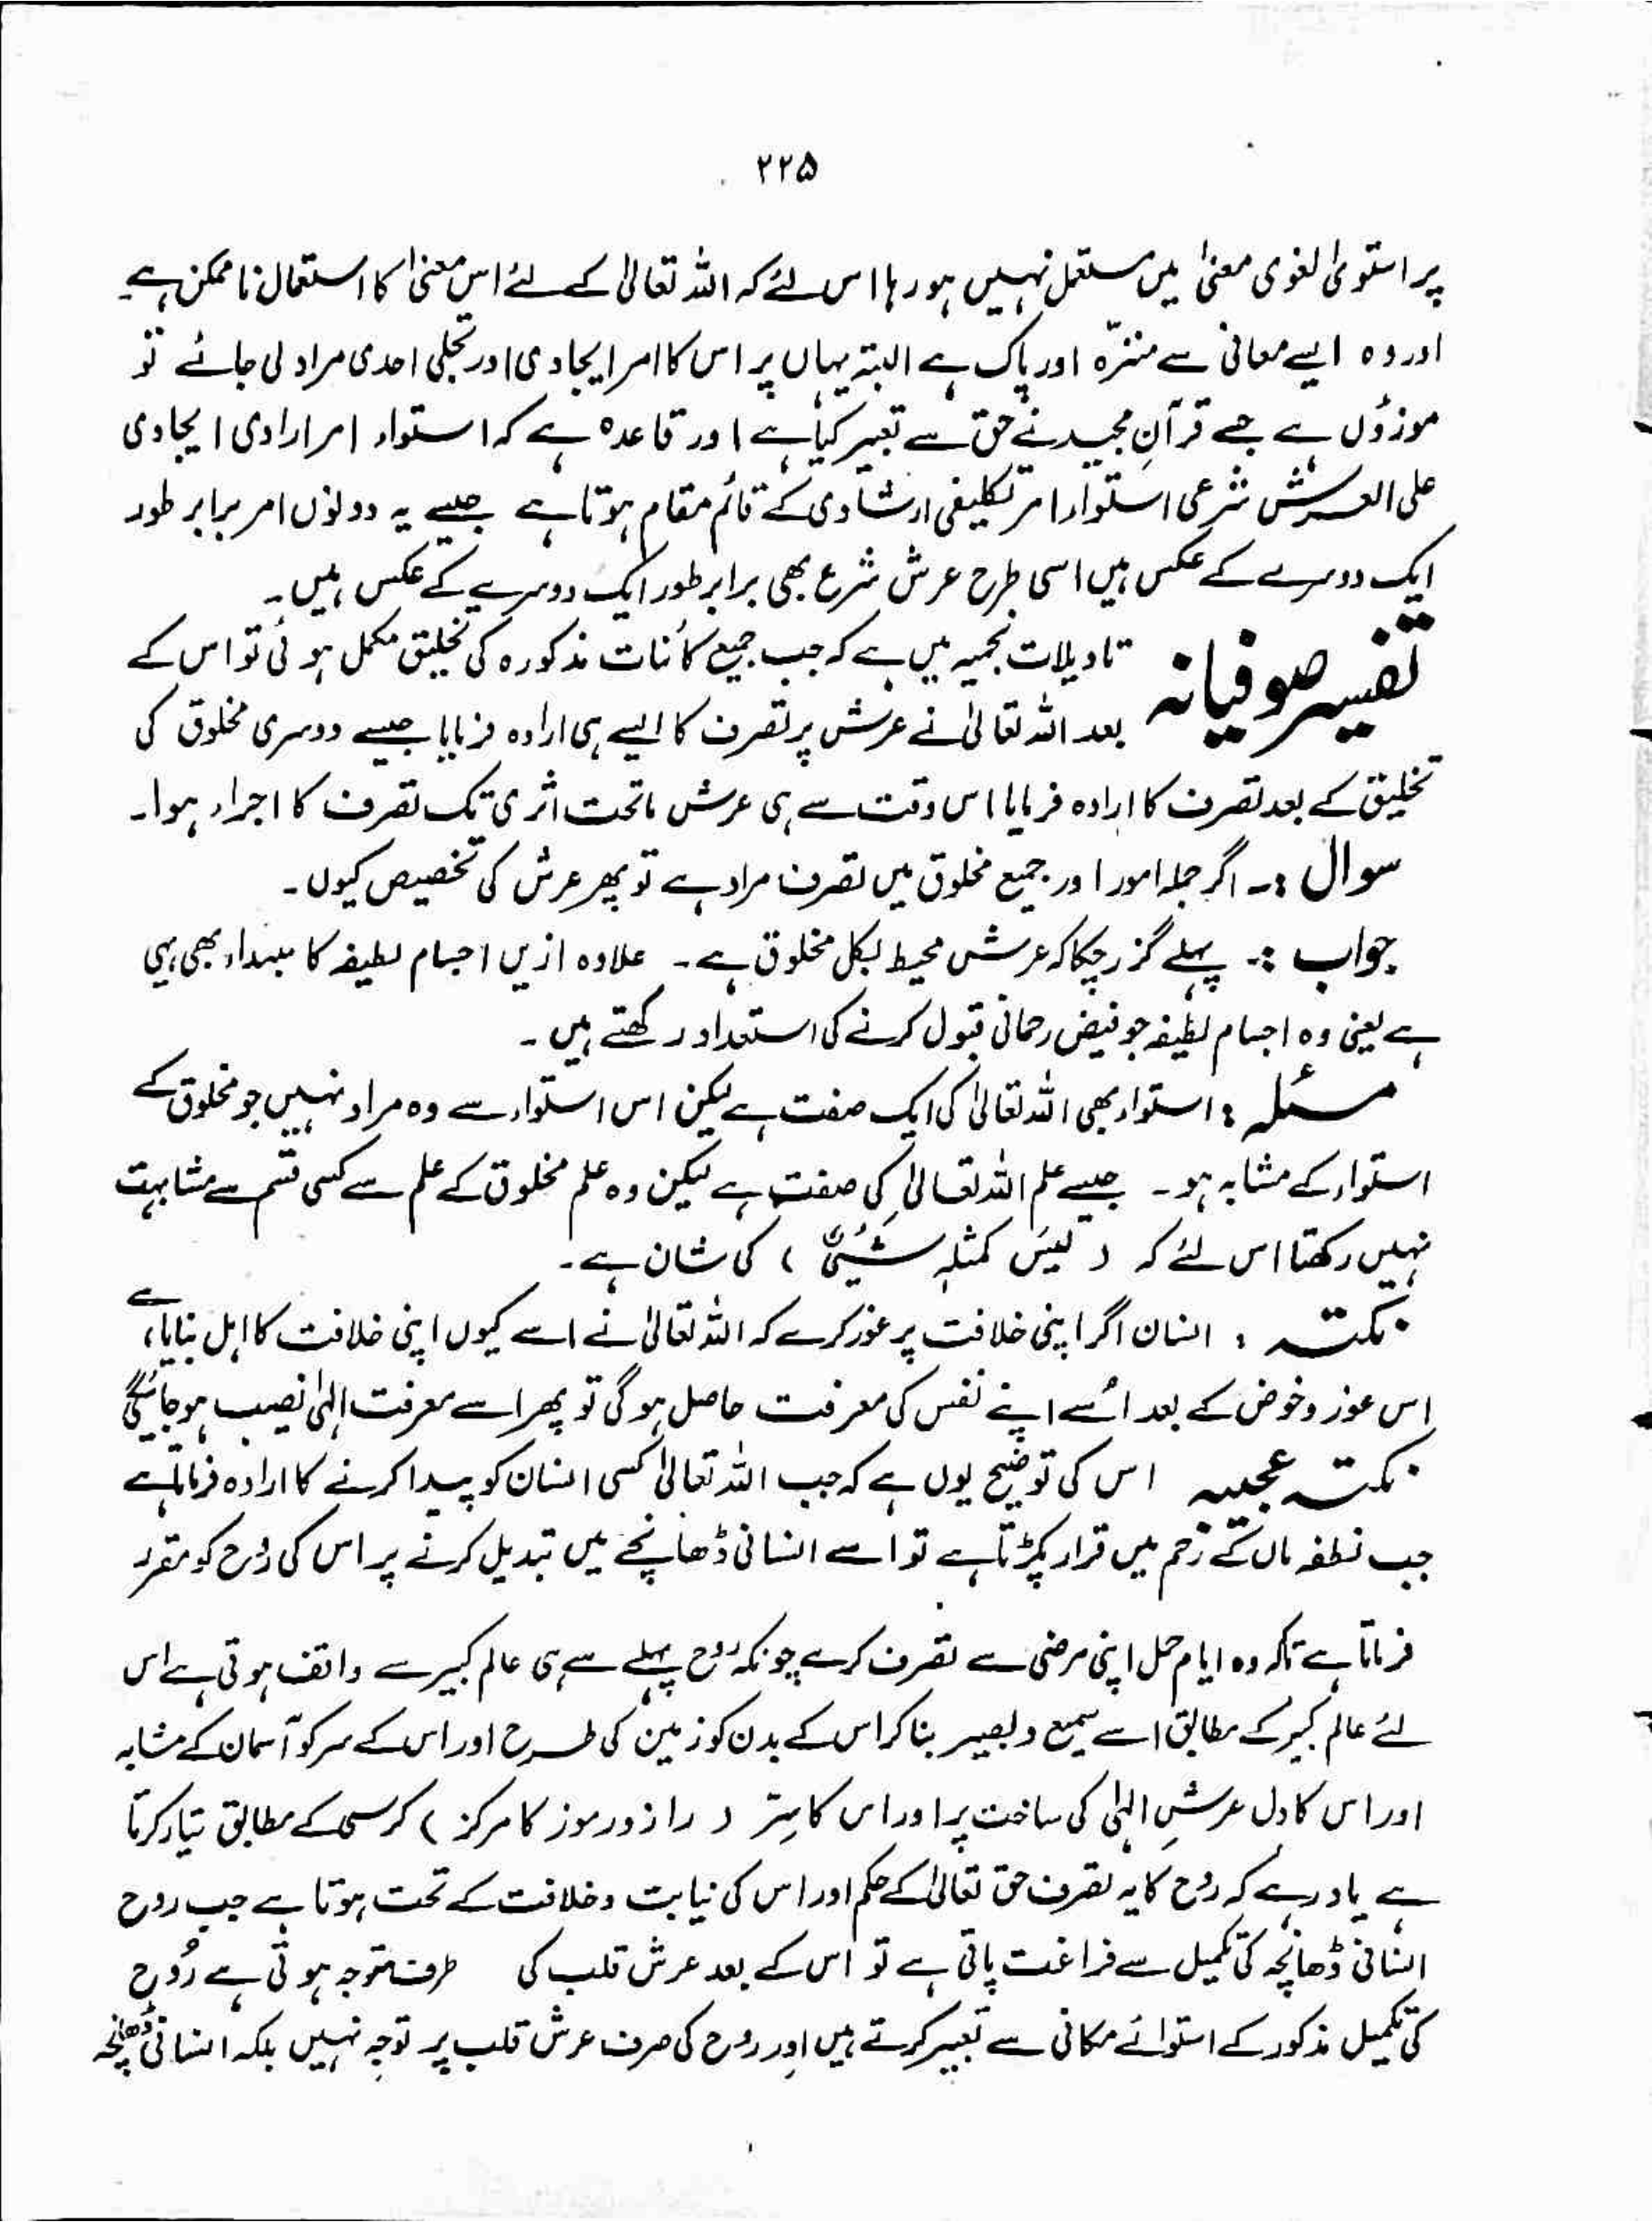 ۲۲۵
پر استویٰ لغوی معنیٰ میں مستعمل نہیں ہو رہا اس لئے کہ اللہ تعالیٰ کے لئے اس معنیٰ کا استعمال ناممکن ہے۔
اور وہ ایسے معانی سے منزّہ اور پاک ہے البتہ یہاں پر اس کا امر ایجادی اور تجلی احدی مراد لی جائے تو
موزؤں ہے جسے قرآنِ مجید نے حق سے تعبیر کیا ہے اور قاعدہ ہے کہ استواء امر ارادی ایجادی
علی العرش شرعی استواء امر تکلیفی ارشادی کے قائم مقام ہوتا ہے جیسے یہ دونوں امر برابر طور
ایک دوسرے کے عکس ہیں اسی طرح عرش شرع بھی برابر طور ایک دوسرے کے عکس ہیں۔
تفسیر صوفیانہ تاویلات نجمیہ میں ہے کہ جب جمیع کائنات مذکورہ کی تخلیق مکمل ہوئی تو اس کے
بعد اللہ تعالیٰ نے عرش پر تصرف کا ایسے ہی ارادہ فرمایا جیسے دوسری مخلوق کی
تخلیق کے بعد تصرف کا ارادہ فرمایا اس وقت سے ہی عرش تا تحت اثری تک تصرف کا اجراء ہوا۔
سوال :۔ اگر جملہ امور اور جمیع مخلوق میں تصرف مراد ہے تو پھر عرش کی تخصیص کیوں۔
جواب :۔ پہلے گزر چکا کہ عرش محیط لکل مخلوق ہے۔ علاوہ ازیں اجسام لطیفہ کا مبداء بھی یہی
ہے یعنی وہ اجسام لطیفہ جو فیض رحمانی قبول کرنے کی استعداد رکھتے ہیں۔
مسئلہ : استواء بھی اللہ تعالیٰ کی ایک صفت ہے لیکن اس استواء سے وہ مراد نہیں جو مخلوق کے
استواء کے مشابہ ہو۔ جیسے علم اللہ تعالیٰ کی صفت ہے لیکن وہ علم مخلوق کے علم سے کسی قسم سے مشابہت
نہیں رکھتا اس لئے کہ ( لَیسَ کمثلہٖ شَیْئٌ ) کی شان ہے۔
نکتہ : انسان اگر اپنی خلافت پر غور کرے کہ اللہ تعالیٰ نے اسے کیوں اپنی خلافت کا اہل بنایا ہے،
اس غور و خوض کے بعد اُسے اپنے نفس کی معرفت حاصل ہوگی تو پھر اسے معرفت الٰہی نصیب ہو جائیگی
نکتہ عجیبہ اس کی توضیح یوں ہے کہ جب اللہ تعالیٰ کسی انسان کو پیدا کرنے کا ارادہ فرماتا ہے
جب نطفہ ماں کے رحم میں قرار پکڑتا ہے تو اسے انسانی ڈھانچے میں تبدیل کرنے پر اس کی رُوح کو مقرر
فرماتا ہے تاکہ وہ ایام حمل اپنی مرضی سے تصرف کرے چونکہ رُوح پہلے سے ہی عالم کبیر سے واقف ہوتی ہے اس
لئے عالم کبیر کے مطابق اسے سمیع و بصیر بنا کر اس کے بدن کو زمین کی طرح اور اس کے سر کو آسمان کے مشابہ
اور اس کا دل عرشِ الٰہی کی ساخت پر اور اس کا سِرّ ( راز و رموز کا مرکز ) کرسی کے مطابق تیار کرتا
ہے یاد رہے کہ رُوح کا یہ تصرف حق تعالیٰ کے حکم اور اس کی نیابت و خلافت کے تحت ہوتا ہے جب روح
انسانی ڈھانچہ کی تکمیل سے فراغت پاتی ہے تو اس کے بعد عرش قلب کی طرف متوجہ ہوتی ہے رُوح
کی تکمیل مذکور کے استوائے مکانی سے تعبیر کرتے ہیں اور روح کی صرف عرش قلب پر توجہ نہیں بلکہ انسانی ڈھانچہ